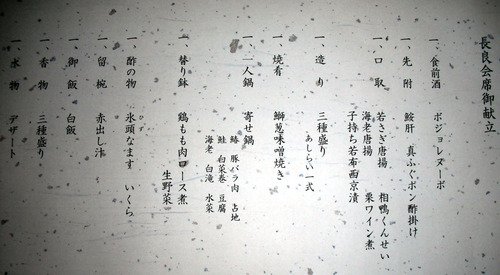 長良会席御献立
一、食前酒 ボジョレヌーボ
一、先附 鮟肝 真ふぐポン酢掛け
一、口取 若さぎ唐揚 相鴨くんせい
海老唐揚 栗ワイン煮
子持ち若布西京漬
一、造り 三種盛り
あしらい一式
一、焼肴 鰤葱味噌焼き
一、一人鍋 寄せ鍋
鰆 豚バラ肉 占地
鮭 白菜巻 豆腐
海老 白滝 水菜
一、替り鉢 鶏もも肉ロース煮
生野菜
一、酢の物 氷頭なます いくら
一、留椀 赤出し汁
一、御飯 白飯
一、香物 三種盛り
一、水物 デザート